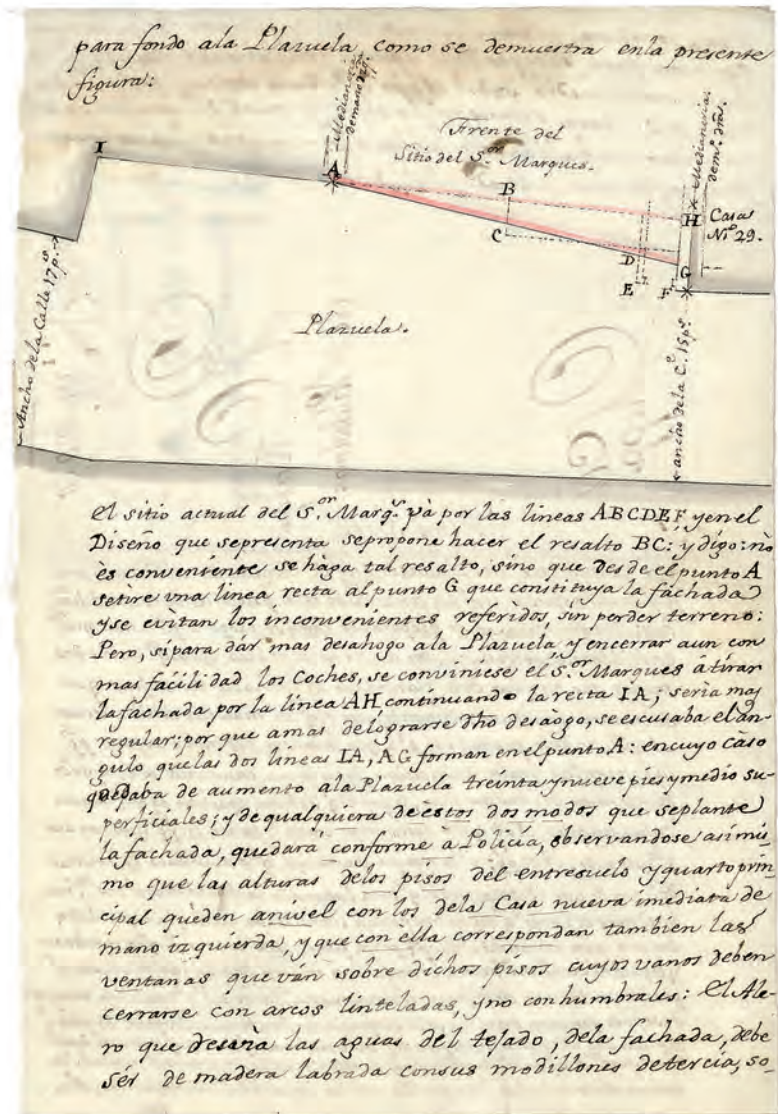 para fondo ala Plazuela como se demuestra enla presente
figura:
Medianeria
de mano izq.ª
Frente del
Sitio del S.ᵒʳ Marques.
Medianeria
de m.º dra.
I
A
B
H
Casa
N.º 29.
C
D
G
E
F
Ancho de la Calle 17 p.ˢ
Plazuela.
ancho de la C.ᵉ 15 p.ˢ
el sitio actual del S.ᵒʳ Marq.ˢ và por las lineas ABCDEF y en el
Diseño que sepresenta sepropone hacer el resalto BC: y digo: no
ès conveniente se hàga tal resalto, sino que desde el punto A
setire vna linea recta al punto G que constituya la fachada
yse evitan los inconvenientes referidos, sin perder terreno:
Pero, sipara dàr mas desahogo ala Plazuela, y encerrar aun con
mas fàcilidad los Coches, se conviniese el S.ᵒʳ Marques à tirar
lafachada por la linea AH continuando la recta IA; seria mas
regular; por que amas delograrse dho desàogo, se escusaba el án-
gulo quelas dos lineas IA, AG forman enelpunto A: encuyo càso
quedaba de aumento ala Plazuela treinta ynueve pies y medio su-
perficiales; y de qualquiera de estos dos modos que seplante
lafachada, quedará conforme à Policìa, observandose asimis-
mo que las alturas delos pisos del entresuelo y quarto prin-
cipal queden anivel con los dela Casa nueva imediata de
mano izquierda, y que con ella correspondan tambien las
ventanas que vàn sobre dichos pisos cuyos vanos deben
cerrarse con arcos linteladas, y no con humbrales: el Ale-
ro que desvia las aguas del tejado, dela fachada, debe
sér de madera labrada consus modillones detercia, so-